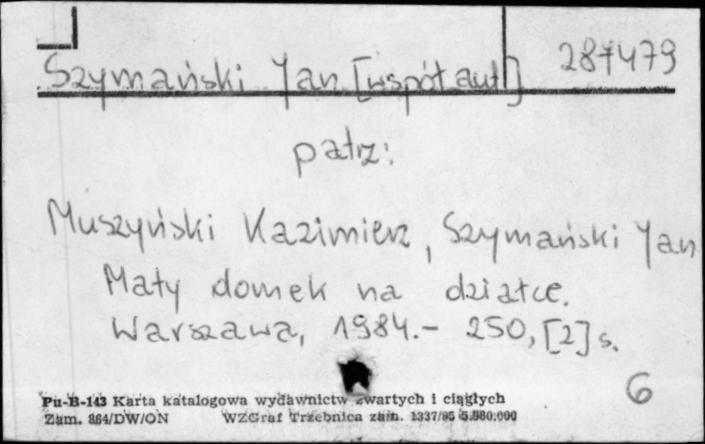 Szymański Jan [współaut] 287479
patrz:
Muszyński Kazimierz, Szymański Jan
Mały domek na działce.
Warszawa, 1984.- 250, [2] s.
6
Pu-B-143 Karta katalogowa wydawnictw zwartych i ciągłych
Zam. 864/DW/ON WZGraf Trzebnica zam. 1337/85 5.980.000